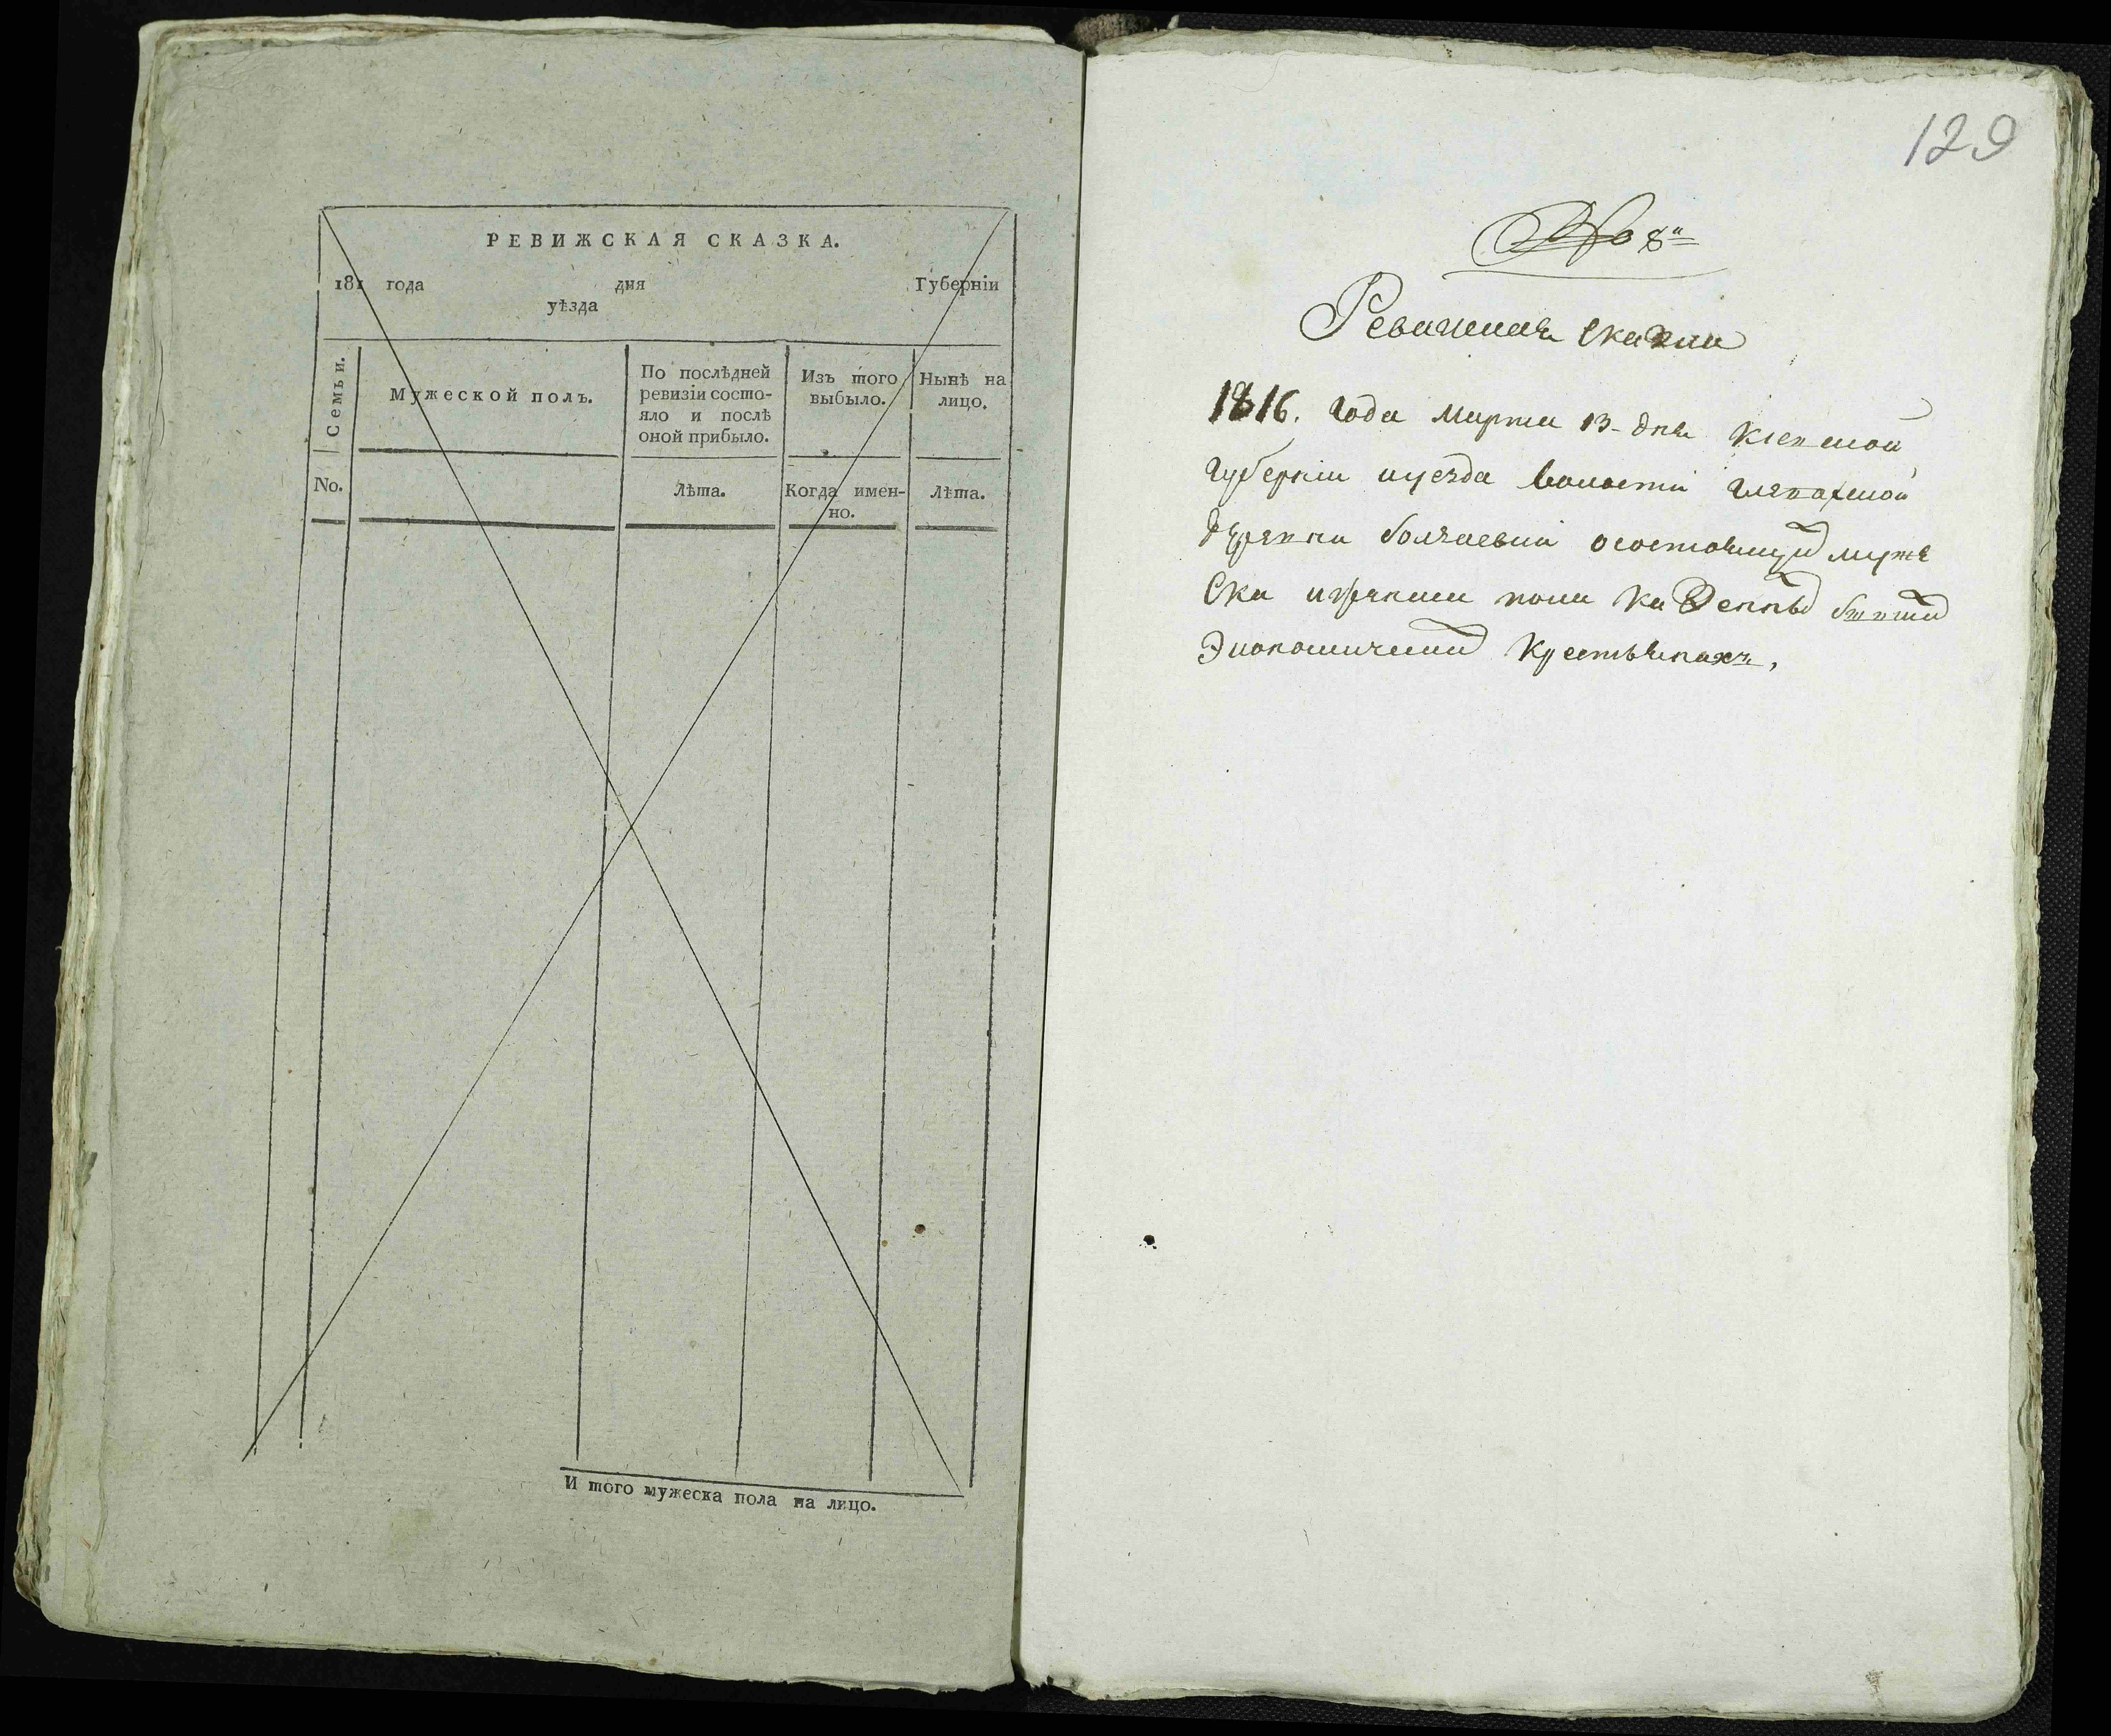 РЕВИЖСКАЯ СКАЗКА.
181 года дня Губернїи
уѣзда
Семьи.
Мужеской полъ.
По послѣдней
ревизїи состо-
яло и послѣ
оной прибыло.
Изъ того
выбыло.
Нынѣ на
лицо.
No.
Лѣта.
Когда имен-
но.
Лѣта.
И того мужеска пола на лицо.
129
№ 8й
Ревижская Скаска
1816. года марта 13 дня
губернїи иуезда волости
деревни осостоящих муже
Ска иженска пола казенных бывших
Экономических Крестьянахъ,